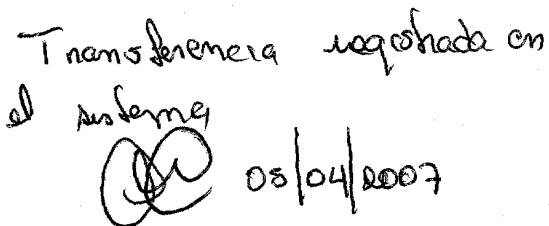 Transferencia registrada en
el sistema
05/04/2007